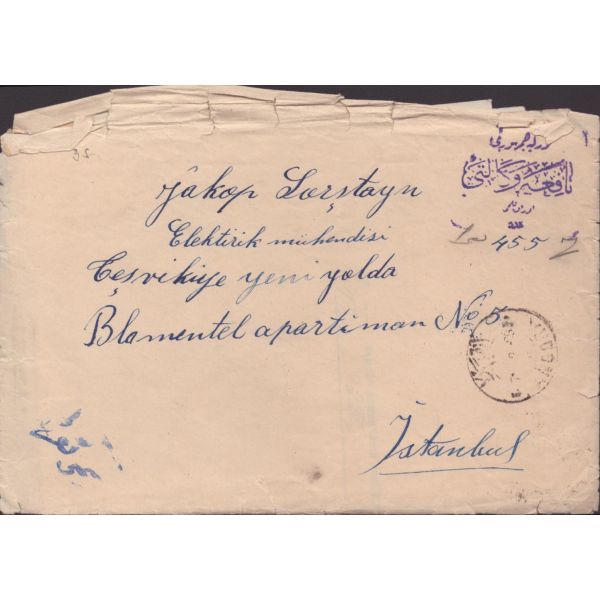 35.
نافعه وكالتی
455
Jakop Lorştayn
Elektirik mühendisi
Teşvikiye yeni yolda
Blamentel apartiman No 5
İstanbul